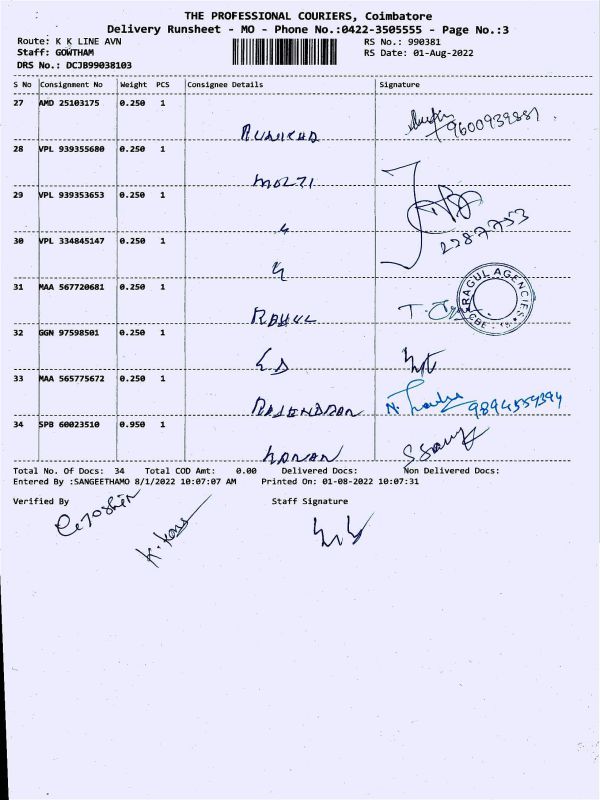 THE PROFESSIONAL COURIERS, Coimbatore
Delivery Runsheet - MO - Phone No.:0422-3505555 - Page No.:3
Route: K K LINE AVN
RS No.: 990381
Staff: GOWTHAM
RS Date: 01-Aug-2022
DRS No.: DCJB99038103
S No Consignment No Weight PCS Consignee Details Signature
27 AMD 25103175 0.250 1
9600939881
28 VPL 939355680 0.250 1
29 VPL 939353653 0.250 1
2287753
30 VPL 334845147 0.250 1
31 MAA 567720681 0.250 1
RAHUL
RAGUL AGENCIES
CBE
32 GGN 97598501 0.250 1
33 MAA 565775672 0.250 1
RAJENDRAN
34 SPB 60023510 0.950 1
Total No. Of Docs: 34 Total COD Amt: 0.00 Delivered Docs: Non Delivered Docs:
Entered By :SANGEETHAMO 8/1/2022 10:07:07 AM Printed On: 01-08-2022 10:07:31
Verified By Staff Signature